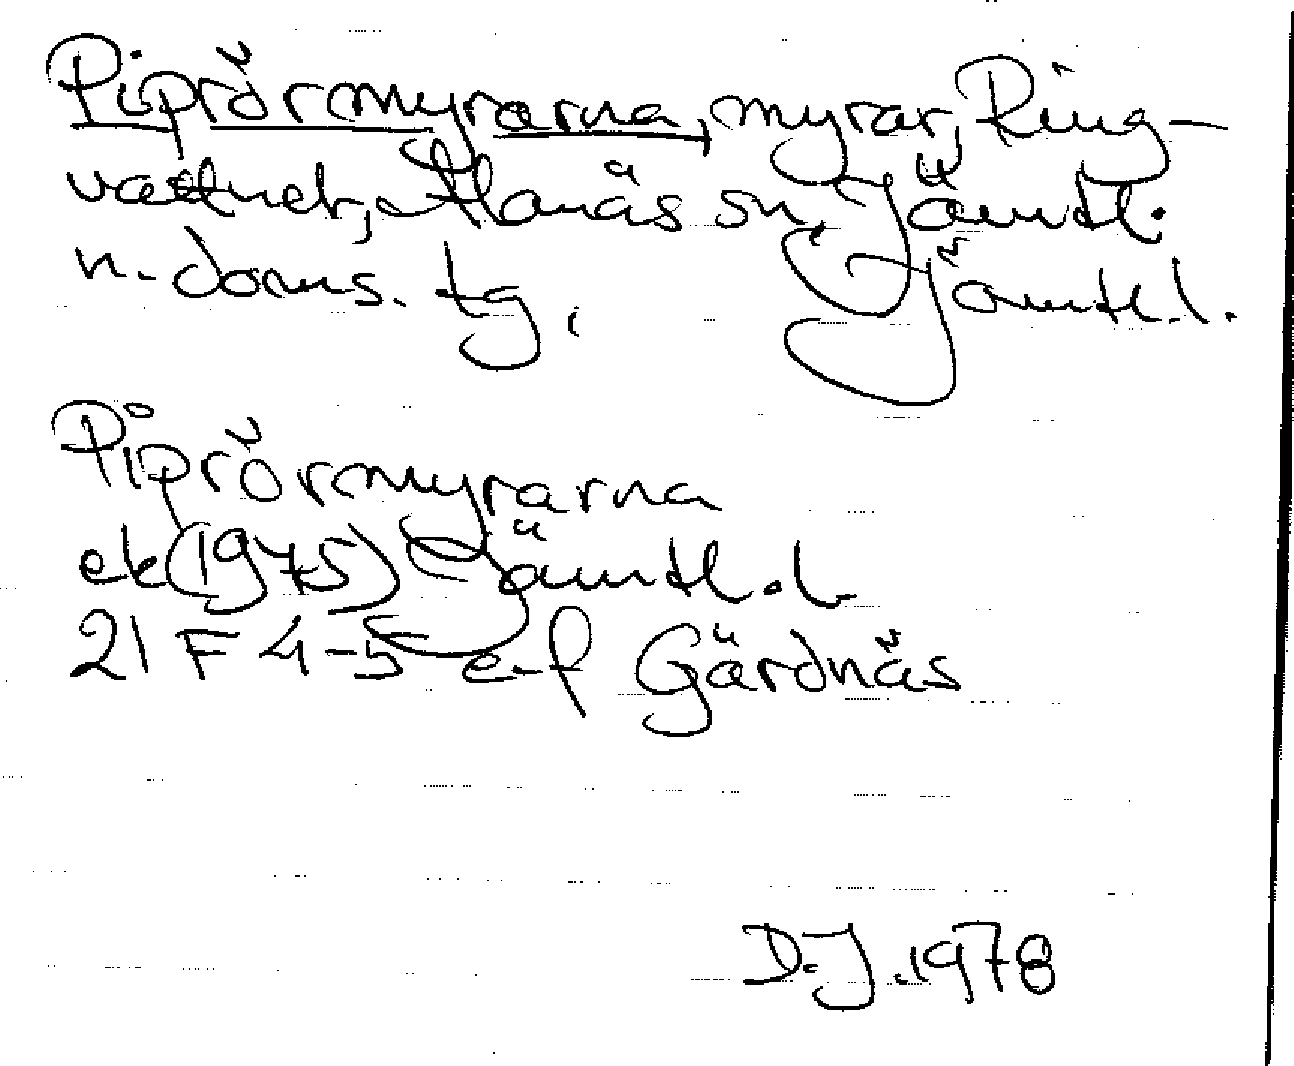 Piprörmyrarna, myrar, Ring-
vattnet, Alanäs sn, Jämtl.
n. doms. tg, Jämtl.l.
Piprörmyrarna
ek (1975) Jämtl.l.
21 F 4-5 e-f Gärdnäs
D.J. 1978